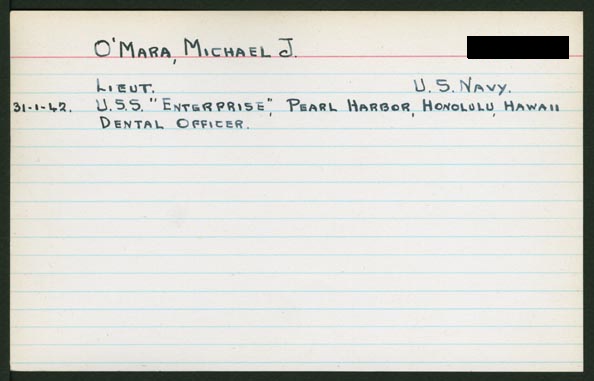 O'MARA, MICHAEL J.
LIEUT. U.S. NAVY.
31-1-42. U.S.S. "ENTERPRISE", PEARL HARBOR, HONOLULU, HAWAII
DENTAL OFFICER.